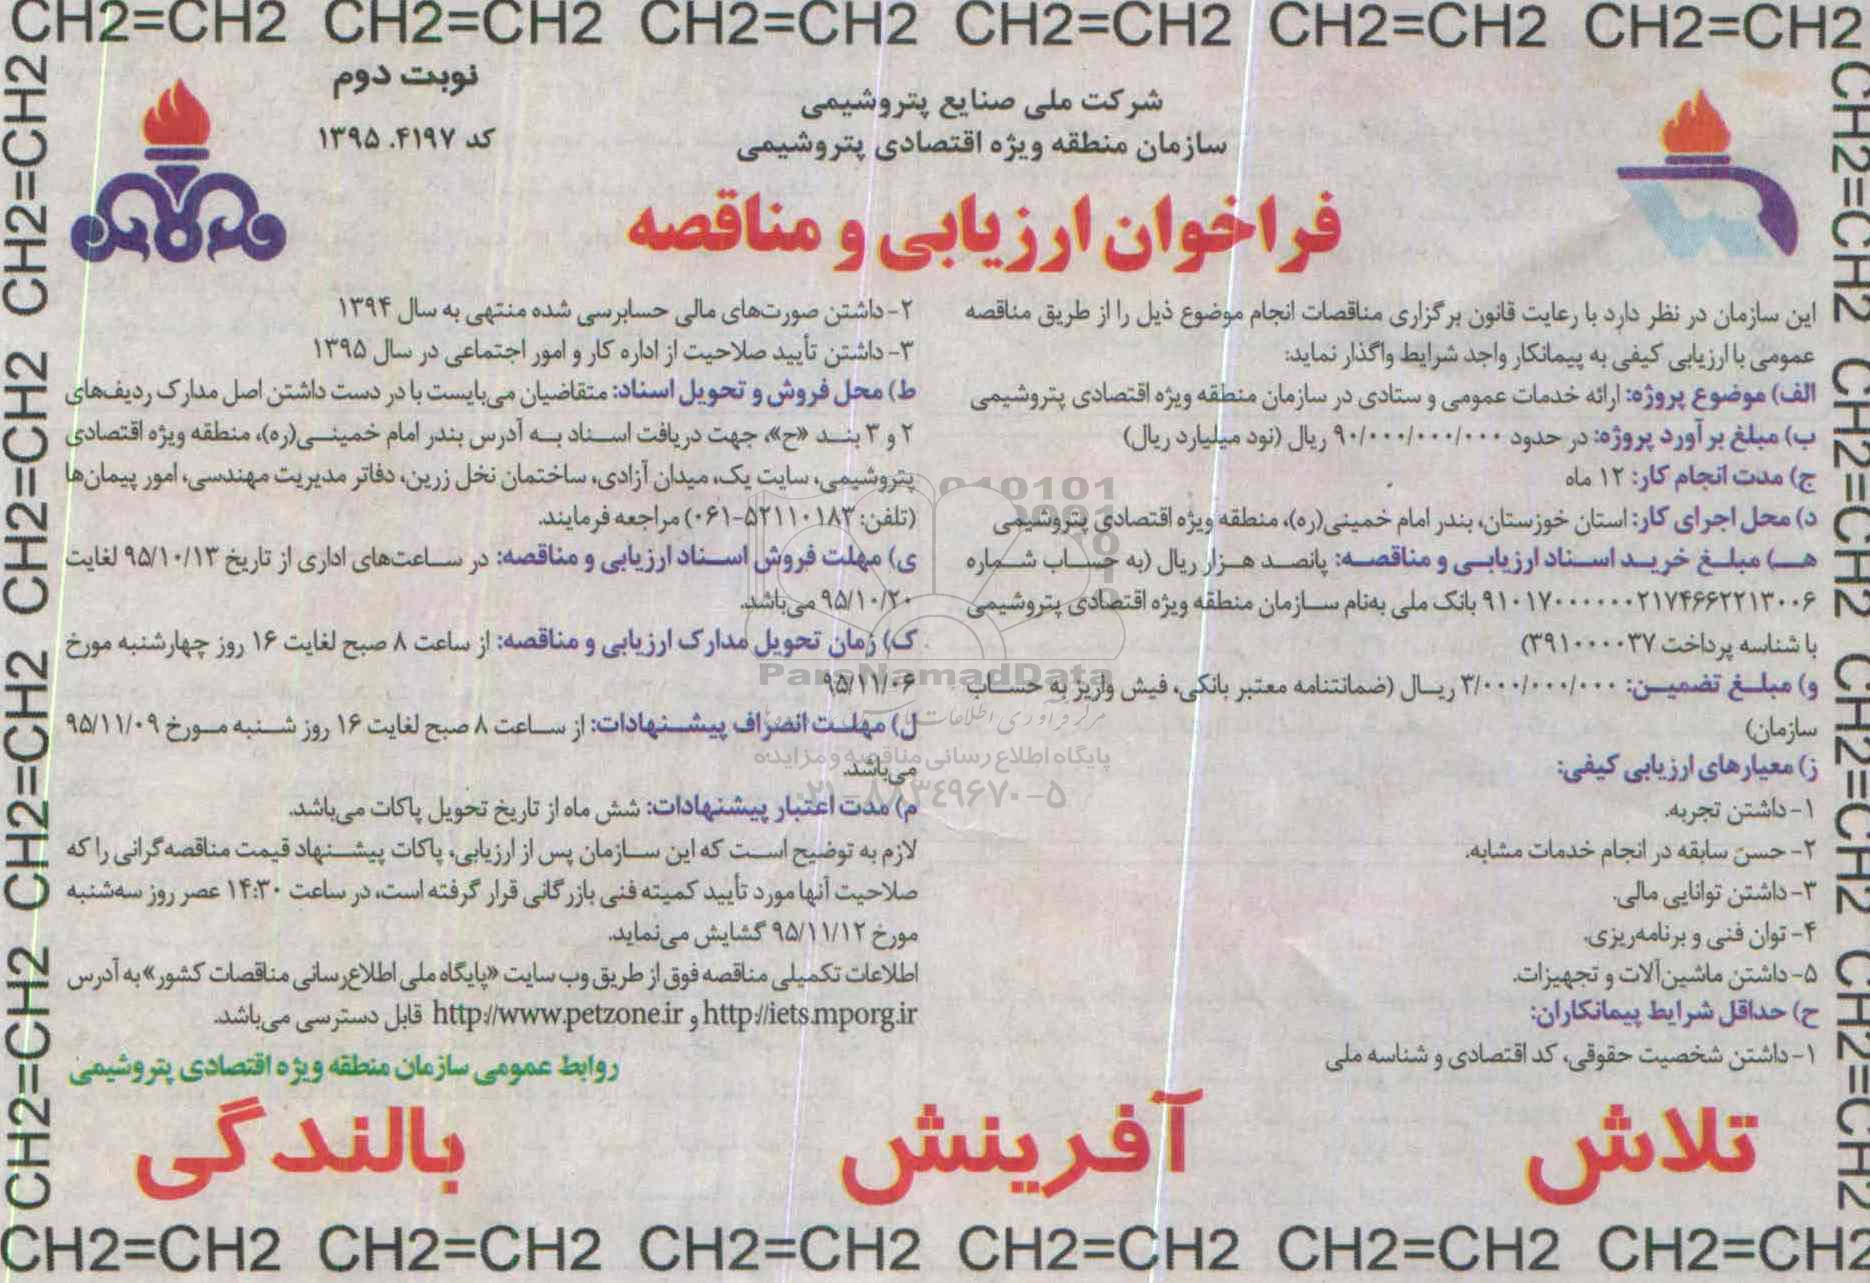 CH2=CH2 CH2=CH2 CH2=CH2 CH2=CH2 CH2=CH2 CH2=CH2
نوبت دوم
کد ۴۱۹۷. ۱۳۹۵
شرکت ملی صنایع پتروشیمی
سازمان منطقه ویژه اقتصادی پتروشیمی
فراخوان ارزیابی و مناقصه
این سازمان در نظر دارد با رعایت قانون برگزاری مناقصات انجام موضوع ذیل را از طریق مناقصه
عمومی با ارزیابی کیفی به پیمانکار واجد شرایط واگذار نماید:
الف) موضوع پروژه: ارائه خدمات عمومی و ستادی در سازمان منطقه ویژه اقتصادی پتروشیمی
ب) مبلغ برآورد پروژه: در حدود ۹۰/۰۰۰/۰۰۰/۰۰۰ ریال (نود میلیارد ریال)
ج) مدت انجام کار: ۱۲ ماه
د) محل اجرای کار: استان خوزستان، بندر امام خمینی(ره)، منطقه ویژه اقتصادی پتروشیمی
هـ) مبلغ خرید اسناد ارزیابی و مناقصه: پانصد هزار ریال (به حساب شماره
۹۱۰۱۷۰۰۰۰۰۰۰۲۱۷۴۶۶۲۲۱۳۰۰۶ بانک ملی به‌نام سازمان منطقه ویژه اقتصادی پتروشیمی
با شناسه پرداخت ۳۹۱۰۰۰۰۳۷)
و) مبلغ تضمین: ۳/۰۰۰/۰۰۰/۰۰۰ ریال (ضمانتنامه معتبر بانکی، فیش واریز به حساب
سازمان)
ز) معیارهای ارزیابی کیفی:
۱- داشتن تجربه.
۲- حسن سابقه در انجام خدمات مشابه.
۳- داشتن توانایی مالی.
۴- توان فنی و برنامه‌ریزی.
۵- داشتن ماشین‌آلات و تجهیزات.
ح) حداقل شرایط پیمانکاران:
۱- داشتن شخصیت حقوقی، کد اقتصادی و شناسه ملی
۲- داشتن صورت‌های مالی حسابرسی شده منتهی به سال ۱۳۹۴
۳- داشتن تأیید صلاحیت از اداره کار و امور اجتماعی در سال ۱۳۹۵
ط) محل فروش و تحویل اسناد: متقاضیان می‌بایست با در دست داشتن اصل مدارک ردیف‌های
۲ و ۳ بند «ح»، جهت دریافت اسناد به آدرس بندر امام خمینی(ره)، منطقه ویژه اقتصادی
پتروشیمی، سایت یک، میدان آزادی، ساختمان نخل زرین، دفاتر مدیریت مهندسی، امور پیمان‌ها
(تلفن: ۵۲۱۱۰۱۸۳-۰۶۱) مراجعه فرمایند.
ی) مهلت فروش اسناد ارزیابی و مناقصه: در ساعت‌های اداری از تاریخ ۹۵/۱۰/۱۳ لغایت
۹۵/۱۰/۲۰ می‌باشد.
ک) زمان تحویل مدارک ارزیابی و مناقصه: از ساعت ۸ صبح لغایت ۱۶ روز چهارشنبه مورخ
۹۵/۱۱/۰۶
ل) مهلت انصراف پیشنهادات: از ساعت ۸ صبح لغایت ۱۶ روز شنبه مورخ ۹۵/۱۱/۰۹
می‌باشد.
م) مدت اعتبار پیشنهادات: شش ماه از تاریخ تحویل پاکات می‌باشد.
لازم به توضیح است که این سازمان پس از ارزیابی، پاکات پیشنهاد قیمت مناقصه‌گرانی را که
صلاحیت آنها مورد تأیید کمیته فنی بازرگانی قرار گرفته است، در ساعت ۱۴:۳۰ عصر روز سه‌شنبه
مورخ ۹۵/۱۱/۱۲ گشایش می‌نماید.
اطلاعات تکمیلی مناقصه فوق از طریق وب سایت «پایگاه ملی اطلاع‌رسانی مناقصات کشور» به آدرس
http://iets.mporg.ir و http://www.petzone.ir قابل دسترسی می‌باشد.
روابط عمومی سازمان منطقه ویژه اقتصادی پتروشیمی
تلاش آفرینش بالندگی
CH2=CH2 CH2=CH2 CH2=CH2 CH2=CH2 CH2=CH2 CH2=CH2
CH2=CH2 CH2=CH2 CH2=CH2 CH2=CH2
CH2=CH2 CH2=CH2 CH2=CH2 CH2=CH2
ParaNamadData
پایگاه اطلاع رسانی مناقصه و مزایده
۰۲۱-۸۸۳۴۹۶۷۰-۵